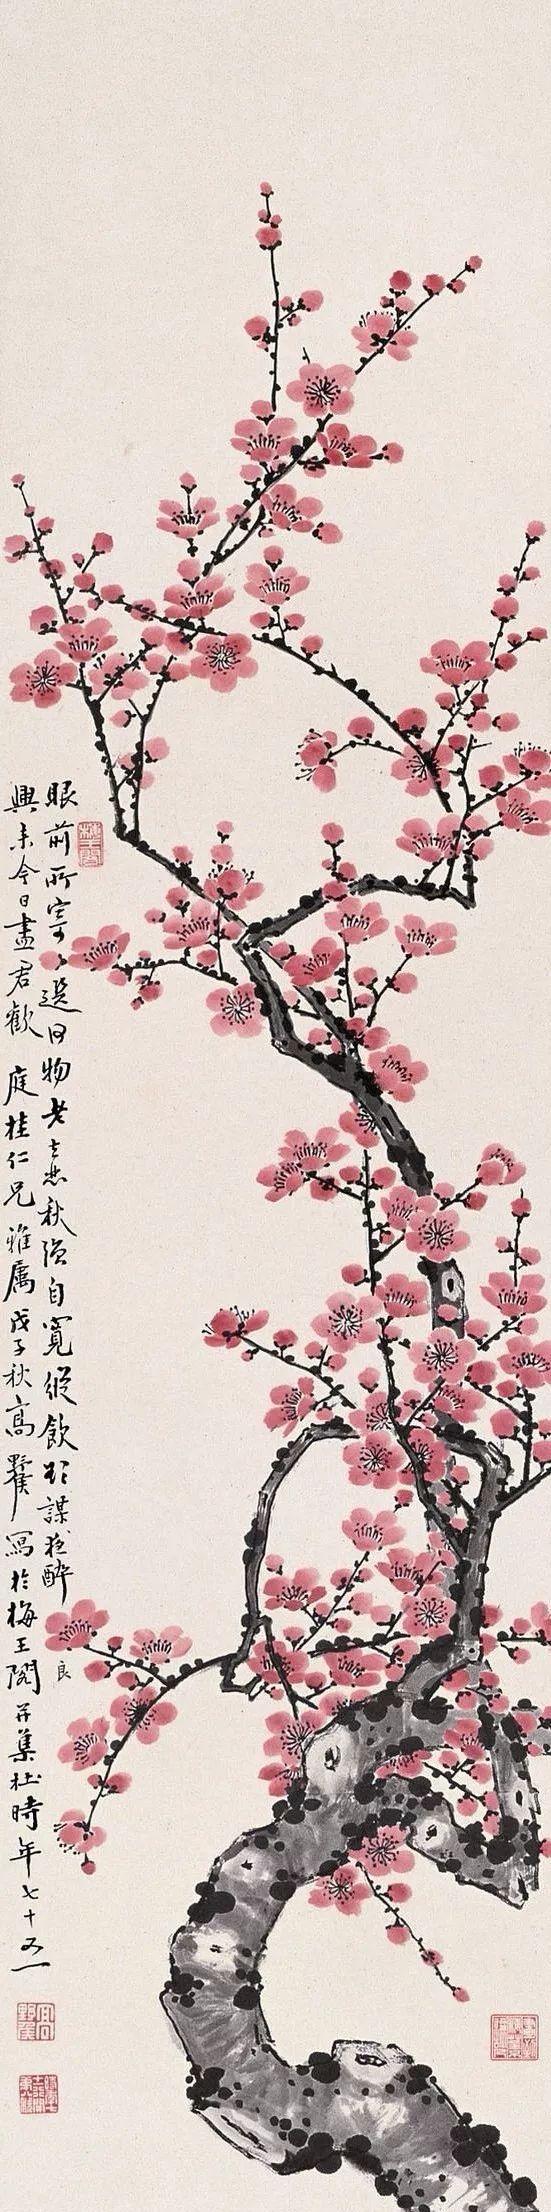 眼前所寄選何物老去悲秋強自寬縱飲欲謀夜醉
良
興來今日盡君歡 庭桂仁兄雅屬戊子秋高野侯寫於梅王閣并集杜時年七十又一
梅王閣
高野侯